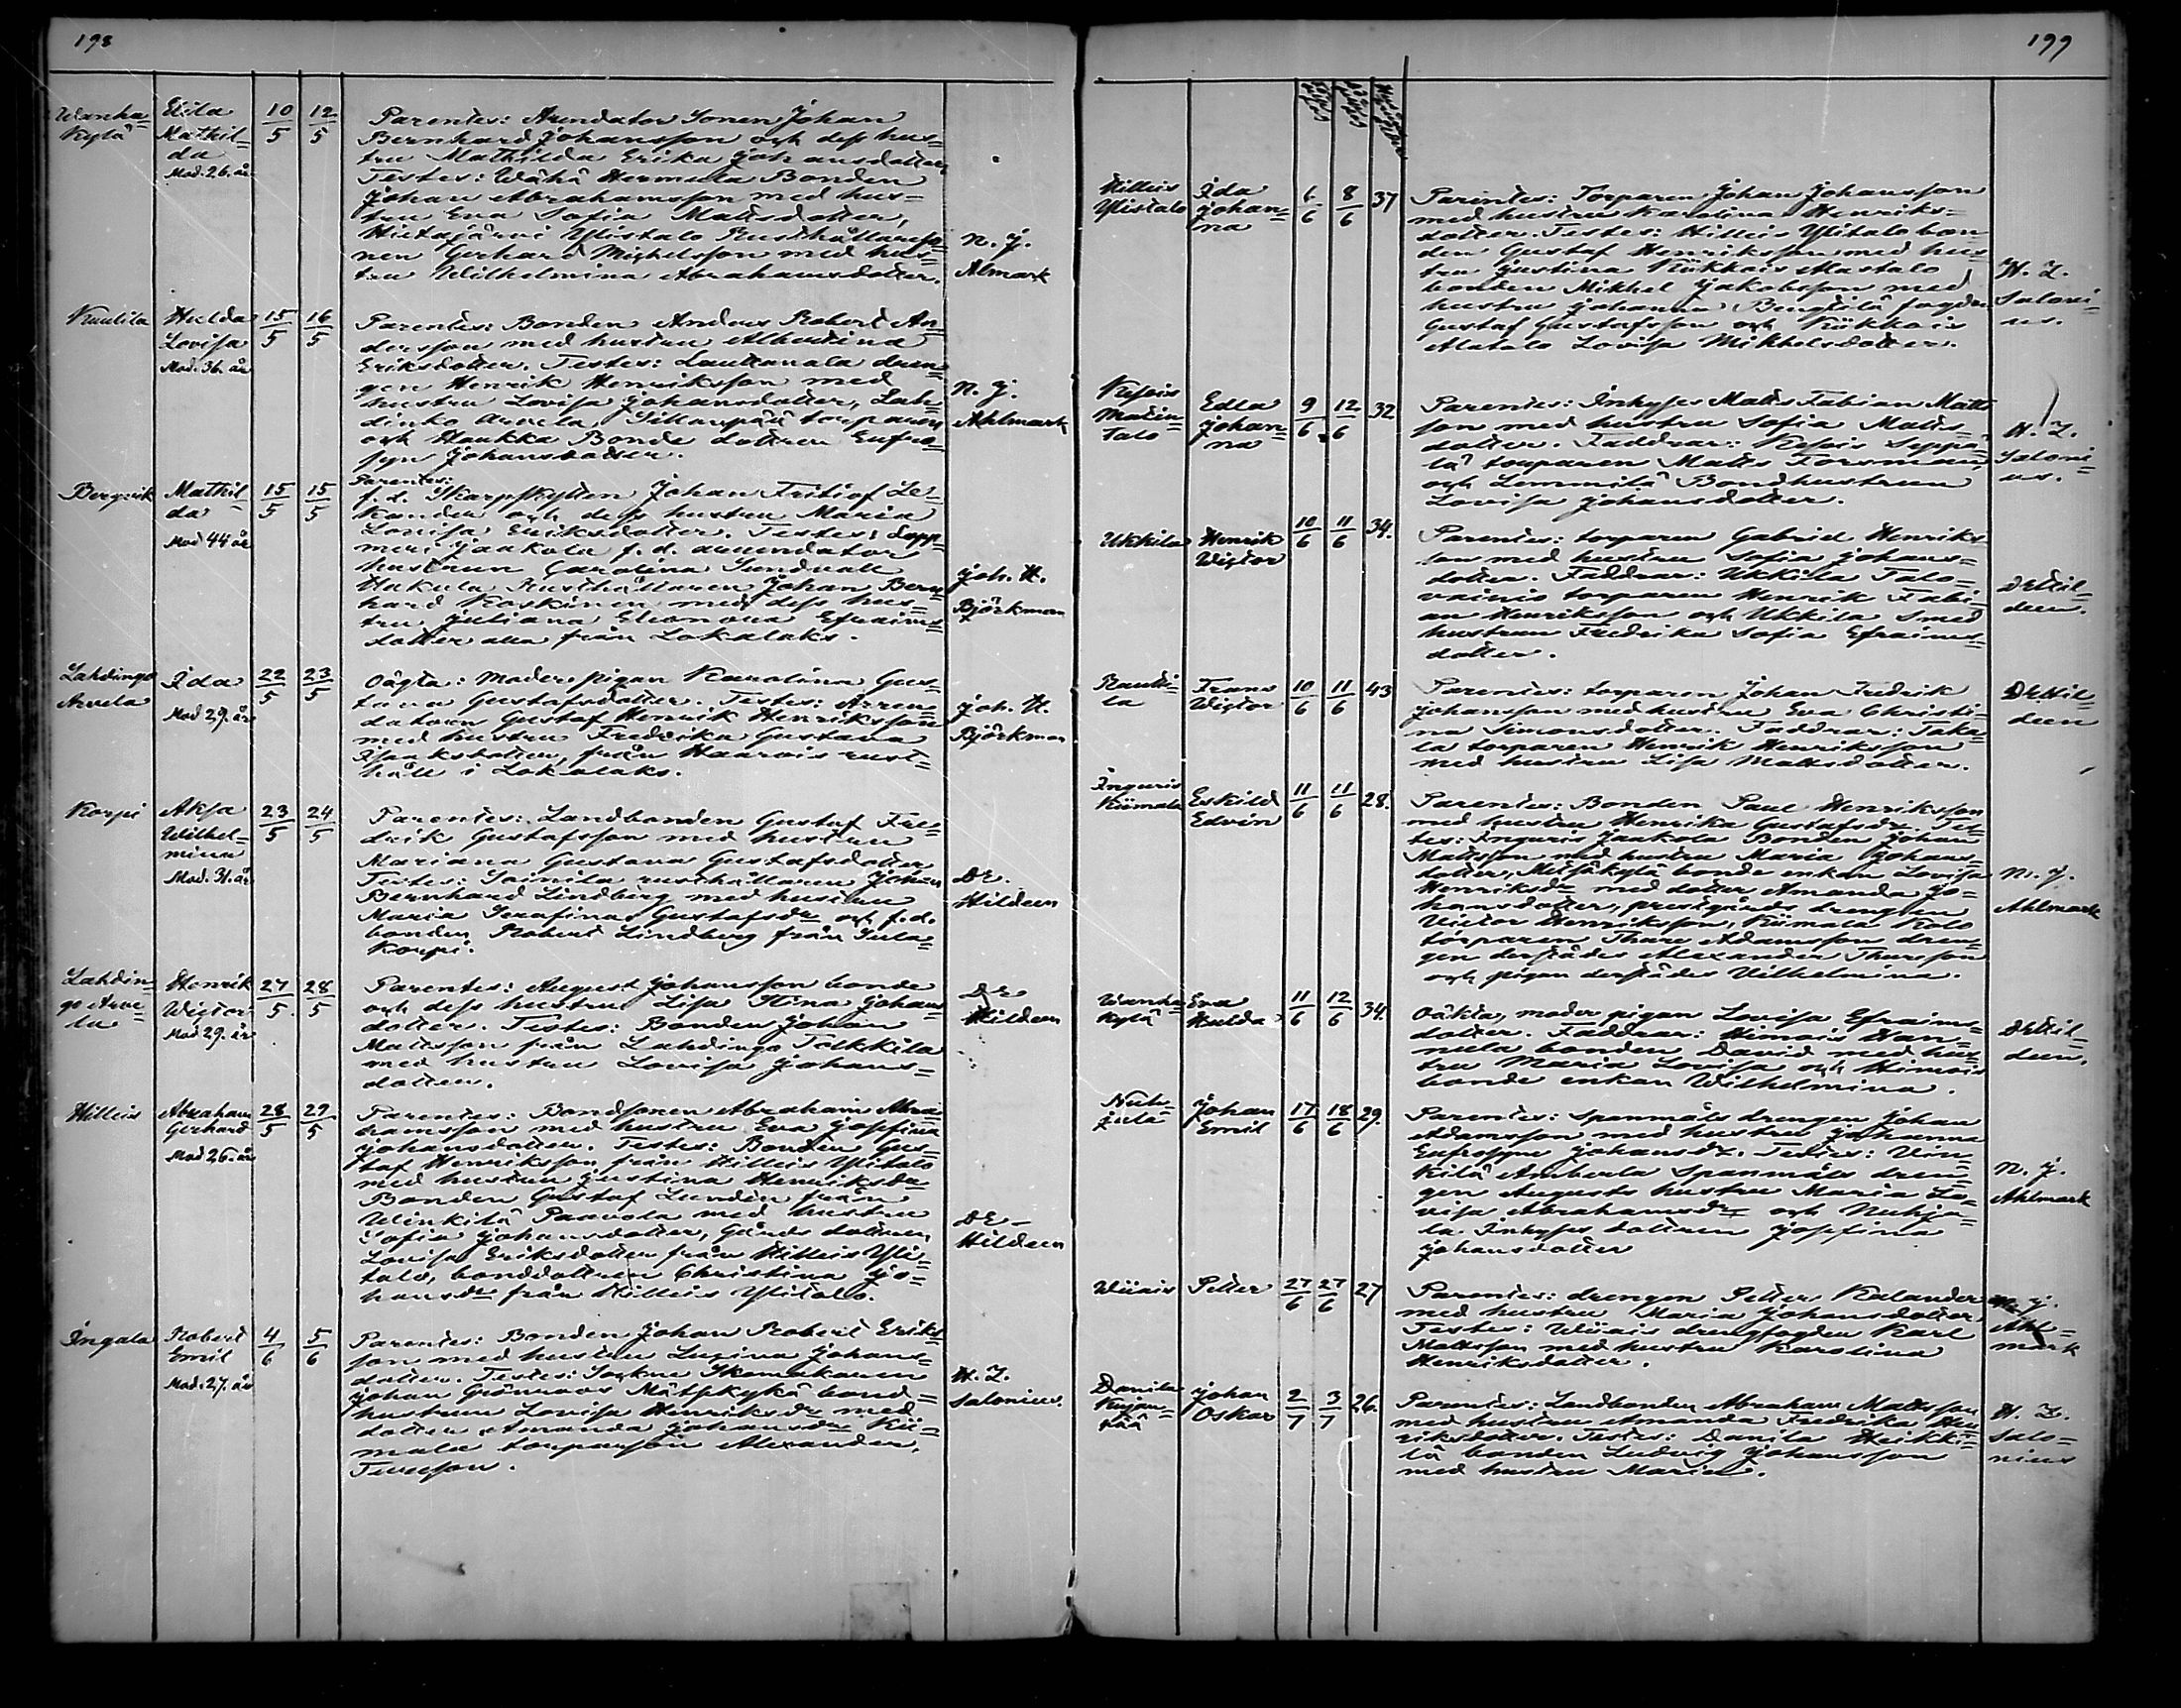 198
Wanha=
Kylä
Elila
Mathil=
da
Mod. 26. år
10/5 12/5
Parentes: Arendator Sonen Johan
Bernhard Johansson och dess hus=
tru Mathilda Erika Johansdotter,
Testes: Wähä Hermula Bonden
Johan Abrahamsson med hus=
tru Eva Sofia Mattsdotter,
Hietajärvi Ylistalo Rusthållareso=
nen Gerhard Mickelsson med hus=
tru Wilhelmina Abrahamsdotter.
N. J.
Almark
Kuulila
Hulda
Lovisa
Mod. 36. år
15/5 16/5
Parentes: Bonden Anders Robert An=
dersson med hustru Albertina
Eriksdotter. Testes: Lautkanala dren=
gen Henrik Henriksson med
hustru Lovisa Johansdotter, Lah=
dinko Arvela, Sillanpää torparen
och Haukka Bonde dottren Eufro=
syn Johansdotter.
N. J.
Ahlmark
Bergvik
Mathil=
da
Mod 44 år
15/5 15/5
Parentes:
f. d. Skarpskytten Johan Fritiof Le=
kander och dess hustru Maria
Lovisa Eriksdotter. Testes: Lepp=
meri Jaakola f. d. arrendator
hustrun Carolina Sundvall
Hakula Rusthållaren Johan Bern=
hard Koskinen med dess hus=
tru Juliana Eleonora Efraims=
dotter alla från Lokalaks.
Joh. H.
Björkman
Lahdingo
Arvela
Ida
Mod 29. år
22/5 23/5
Oägta: Moder pigan Karolina Gus=
tava Gustafsdotter. Testes: Arren=
datorn Gustaf Henrik Henriksson
med hustru Fredrika Gustava
Isaaksdotter, från Haarois rust=
håll i Lokalaks.
Joh. H.
Björkman
Korpi
Aksa
Wilhel=
mina
Mod. 31. år
23/5 24/5
Parentes: Landbonden Gustaf Fre=
drik Gustafsson med hustru
Mariana Gustava Gustafsdotter
Testes: Soinila rusthållaren Johan
Bernhard Lindberg med hustru
Maria Serafina Gustafsdr och f. d.
bonden Robert Lindberg från Sula=
Korpi.
DE.
Hildeen
Lahdin=
go Arve=
la
Henrik
Wictor
Mod 29. år
27/5 28/5
Parentes: August Johansson bonde
och dess hustru Lisa Stina Johans=
dotter. Testes: Bonden Johan
Mattsson från Lahdingo Takkila
med hustru Lovisa Johans=
dotter.
DE
Hildeen
Hilleis
Abraham
Gerhard
Mod 26. år
28/5 29/5
Parentes: Bondsonen Abraham Abra=
hamsson med hustru Eva Josefina
Johansdotter. Testes: Bonden Gus=
taf Henriksson från Hilleis Ylitalo
med hustru Justina Henriksdr
Bonden Gustaf Lundén från
Winkilä Paavola med hustru
Sofia Johansdotter, Gårds dottren
Lovisa Eriksdotter från Hilleis Yli=
talo, bonddottren Christina Jo=
hansdr från Hilleis Ylitalo.
DE
Hildeen
Ingala
Robert
Emil
Mod. 27. år
4/6 5/6
Parentes: Bonden Johan Robert Eriks=
son med hustru Lusina Johans=
dotter. Testes: Sockne Skomakaren
Johan Grönroos Mätskykä bond=
hustrun Lovisa Henriksdr med
dotter Amanda Johansdr Kii=
mala torparson Alexander,
Turesson.
H. Z.
Salonius.
199
Hilleis
Ylistalo
Ida
Johan=
na
6/6 8/6 37
Parentes: Torparen Johan Johansson
med hustru Karolina Henriks=
dotter. Testes: Hilleis Ylitalo bon
den Gustaf Henriksson med hus=
tru Justina Kükkais Alastalo
bonden Mikkel Jakobsson med
hustru Johanna Bengtilä fogden
Gustaf Gustafsson och Kükkais
Alatalo Lovisa Mikkelsdotter.
H. Z.
Saloni=
us.
Kesois
Matin=
talo
Edla
Johan=
na
9/6 12/6 32
Parentes: Inhyses Matts Fabian Matts
son med hustru Sofia Matts=
dotter. Faddrar: Kesois Seppä=
lä torparen Matts Forsman
och Lemmilä Bondhustrun
Lovisa Johansdotter.
H. Z.
Saloni=
us.
Ukkila
Henrik
Wictor
10/6 11/6 34.
Parentes: torparen Gabriel Henriks
son med hustru Sofia Johans=
dotter. Faddrar: Ukkila Talo=
vainio torparen Henrik Fabi=
an Henriksson och Ukkila smed
hustrun Fredrika Sofia Efraims=
dotter.
DEHil=
deen.
Rautti=
la
Frans
Wictor
10/6 11/6 43
Parentes: torparen Johan Fredrik
Johansson med hustru Eva Christi=
na Simonsdotter. Faddrar: Taka=
la torparen Henrik Henriksson
med hustru Lisa Mattsdotter.
DEHil=
deen
Inguris
Kiimala
Eskild
Edvin
11/6 11/6 28.
Parentes: Bonden Paul Henriksson
med hustru Henrika Gustafsdr. Tes=
tes: Inguris Jaakola Bonden Johan
Mattsson med hustru Maria Johans=
dotter, Metsäkylä bonde enkan Lovisa
Henriksdr med dotter Amanda Jo=
hansdotter, prestgårds drengen
Victor Henriksson, Kiimala Kolo
torparen Thure Adamsson dren=
gen derstädes Alexander Thuresson
och pigan derstädes Vilhelmina.
N. J.
Ahlmark
Wanha
kylä
Eva
Hulda
11/6 12/6 34.
Oäkta, moder pigan Lovisa Efraims=
dotter. Faddrar: Himois Han=
nula bonden David med hus=
tru Maria Lovisa och Himois
bonde enkan Wilhelmina.
DEHil=
deen.
Nuh=
jala
Johan
Emil
17/6 18/6 29.
Parentes: Spanmåls drengen Johan
Adamsson med hustru Johanna
Eufrosyne Johansdr. Testes: Vin=
kilä Amberla Spanmåls dren=
gen Augusts hustru Maria Lo=
visa Abrahamsdr och Nuhja=
la Inhyses dottren Josefina
Johansdotter
N. J.
Ahlmark
Wiiais
Petter
27/6 27/6 27
Parentes: drengen Petter Kalander
med hustru Maria Johansdotter,
Testes: Wiiais drengfogden Karl
Mattsson med hustru Karolina
Henriksdotter.
N. J.
Ahl=
mark
Danila
Kujan=
pää
Johan
Oskar
2/7 3/7 26.
Parentes: Landbonden Abraham Mattsson
med hustru Amanda Fredrika Hen=
riksdotter. Testes: Danila Heikki=
lä bonden Ludvig Johansson
med hustru Maria.
H. Z.
Salo=
nius